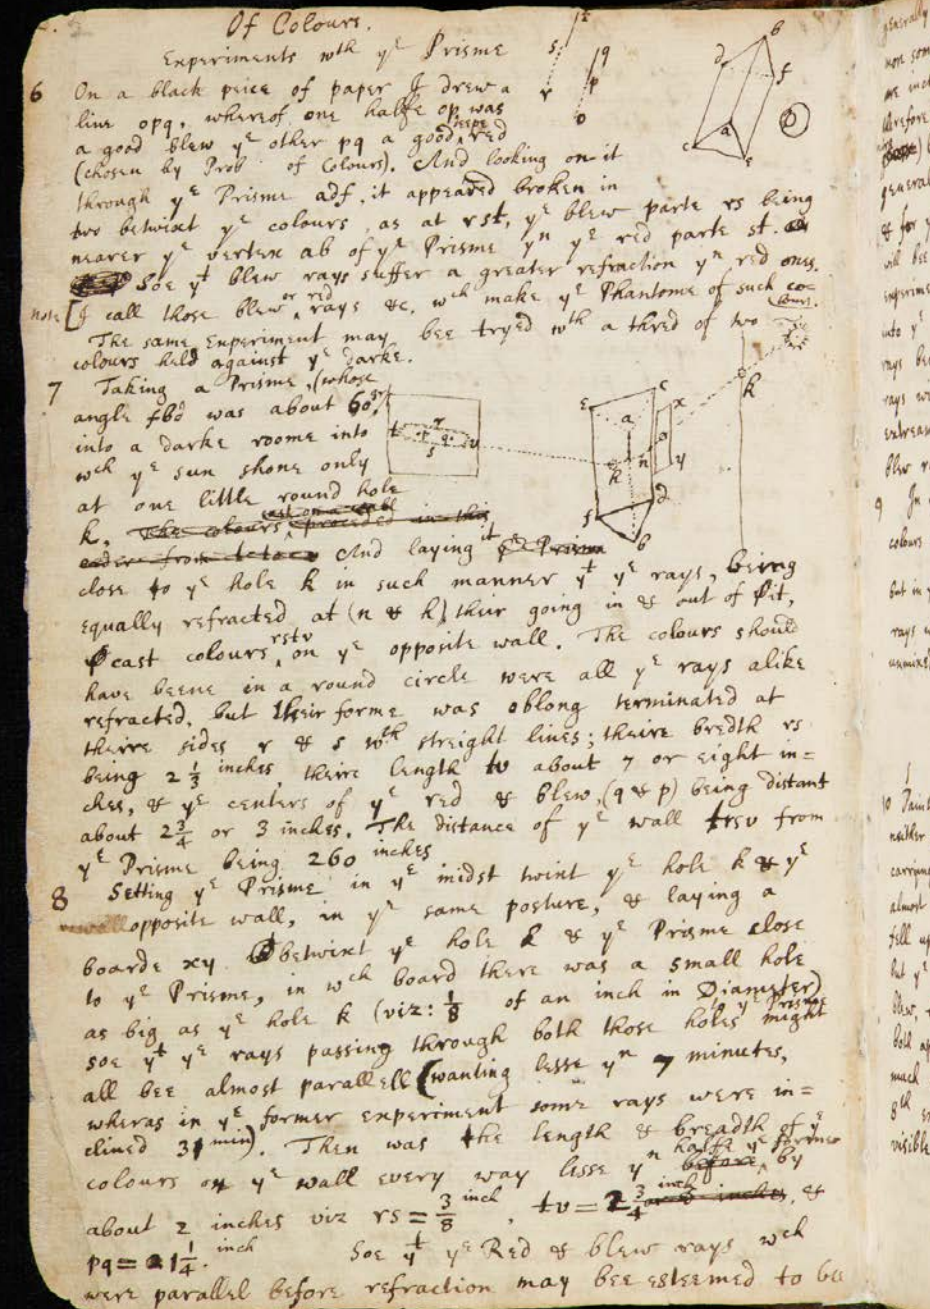 Of Colours.
Experiments wth ye Prisme
6 On a black peice of paper I drew a
line opq, whereof one halfe op was
a good blew ye other pq a good deepe red
(chosen by Prob of Colours). And looking on it
through ye Prisme adf, it appeared broken in
two betwixt ye colours, as at rst, ye blew parte rs being
nearer ye vertex ab of ye Prisme yn ye red parte st.
Soe yt blew rays suffer a greater refraction yn red ones.
note [I call those blew or red rays &c, wch make ye Phantome of such co=
lours.
The same Experiment may bee tryed wth a thred of two
colours held against ye darke.
7 Taking a Prisme, (whose
angle fbd was about 60gr)
into a darke roome into
wch ye sun shone only
at one little round hole
k. The colours, cast on a proceded in this
order from And laying it ye Prisme
close to ye hole k in such manner yt ye rays, being
equally refracted at (n & h) their going in & out of it,
cast colours rstv on ye opposite wall. The colours should
have beene in a round circle were all ye rays alike
refracted, but their forme was oblong terminated at
theire sides r & s wth streight lines; theire bredth rs
being 2 1/3 inches, theire length tv about 7 or eight in=
ches, & ye centers of ye red & blew, (q & p) being distant
about 2 3/4 or 3 inches. The distance of ye wall trsv from
ye Prisme being 260 inches
8 Setting ye Prisme in ye midst twixt ye hole k & ye
opposite wall, in ye same posture, & laying a
boarde xy betwixt ye hole k & ye Prisme close
to ye Prisme, in wch board there was a small hole
as big as ye hole k (viz: 1/8 of an inch in Diameter)
soe yt ye rays passing through both those holes to ye Prisme might
all bee almost parallell (wanting lesse yn 7 minutes,
wheras in ye former experiment some rays were in=
clined 31 min). Then was the length & breadth of ye
colours on ye wall every way lesse yn halfe ye former before, by
about 2 inches viz rs = 3/8 inch, tv = 2 3/4 inch or 3 inches, &
pq = 1 1/4 inch. Soe yt ye Red & blew rays wch
were parallel before refraction may bee esteemed to bee
s
t
q
r
p
o
b
d
f
a
c
e
t
r
p
q
s
v
E
c
a
x
n
h
y
f
d
b
k
9
10
8th